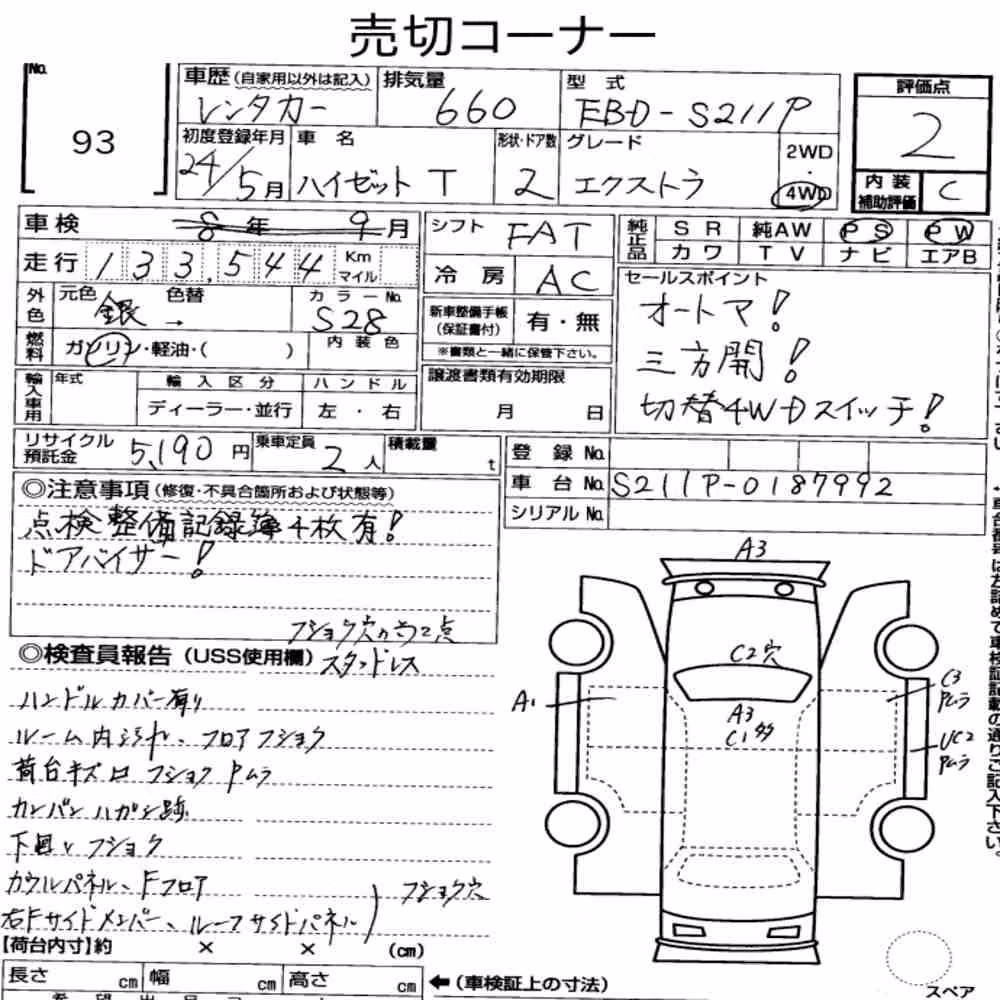 売切コーナー
No. 93
車歴(自家用以外は記入) レンタカー
排気量 660
型式 EBD-S211P
評価点 2
初度登録年月 24/5月
車名 ハイゼットT
形状・ドア数 2
グレード エクストラ
2WD・4WD
内装補助評価 C
車検 8年 9月
シフト FAT
純正品 SR 純AW PS PW
カワ TV ナビ エアB
走行 133,544 Km マイル
冷房 AC
セールスポイント
オートマ!
三方開!
切替4WDスイッチ!
外色 元色 銀 → 色替 カラーNo. S28
新車整備手帳(保証書付) 有・無
※書類と一緒に保管下さい。
燃料 ガソリン・軽油・( ) 内装色
輸入車用 年式 輸入区分 ハンドル
ディーラー・並行 左・右
譲渡書類有効期限
月 日
リサイクル預託金 5,190円
乗車定員 2人
積載量 t
登録No.
車台No. S211P-0187992
シリアルNo.
◎注意事項(修復・不具合箇所および状態等)
点検整備記録簿4枚有!
ドアバイザー!
◎検査員報告(USS使用欄) スタッドレス
ハンドルカバー有り
ルーム内汚れ、フロアフショク
荷台キズ凹フショクPムラ
カンバンハガシ跡
下回りフショク
カウルパネル、Fフロア
右Fサイドメンバー、ルーフサイドパネル
フショク穴
A3
C2穴
A3
C1多
A1
C3
Pムラ
UC2
Pムラ
【荷台内寸】約 × × (cm)
長さ cm 幅 cm 高さ cm ←(車検証上の寸法)
スペア
車台番号は左詰めで車検証記載の通りご記入下さい。